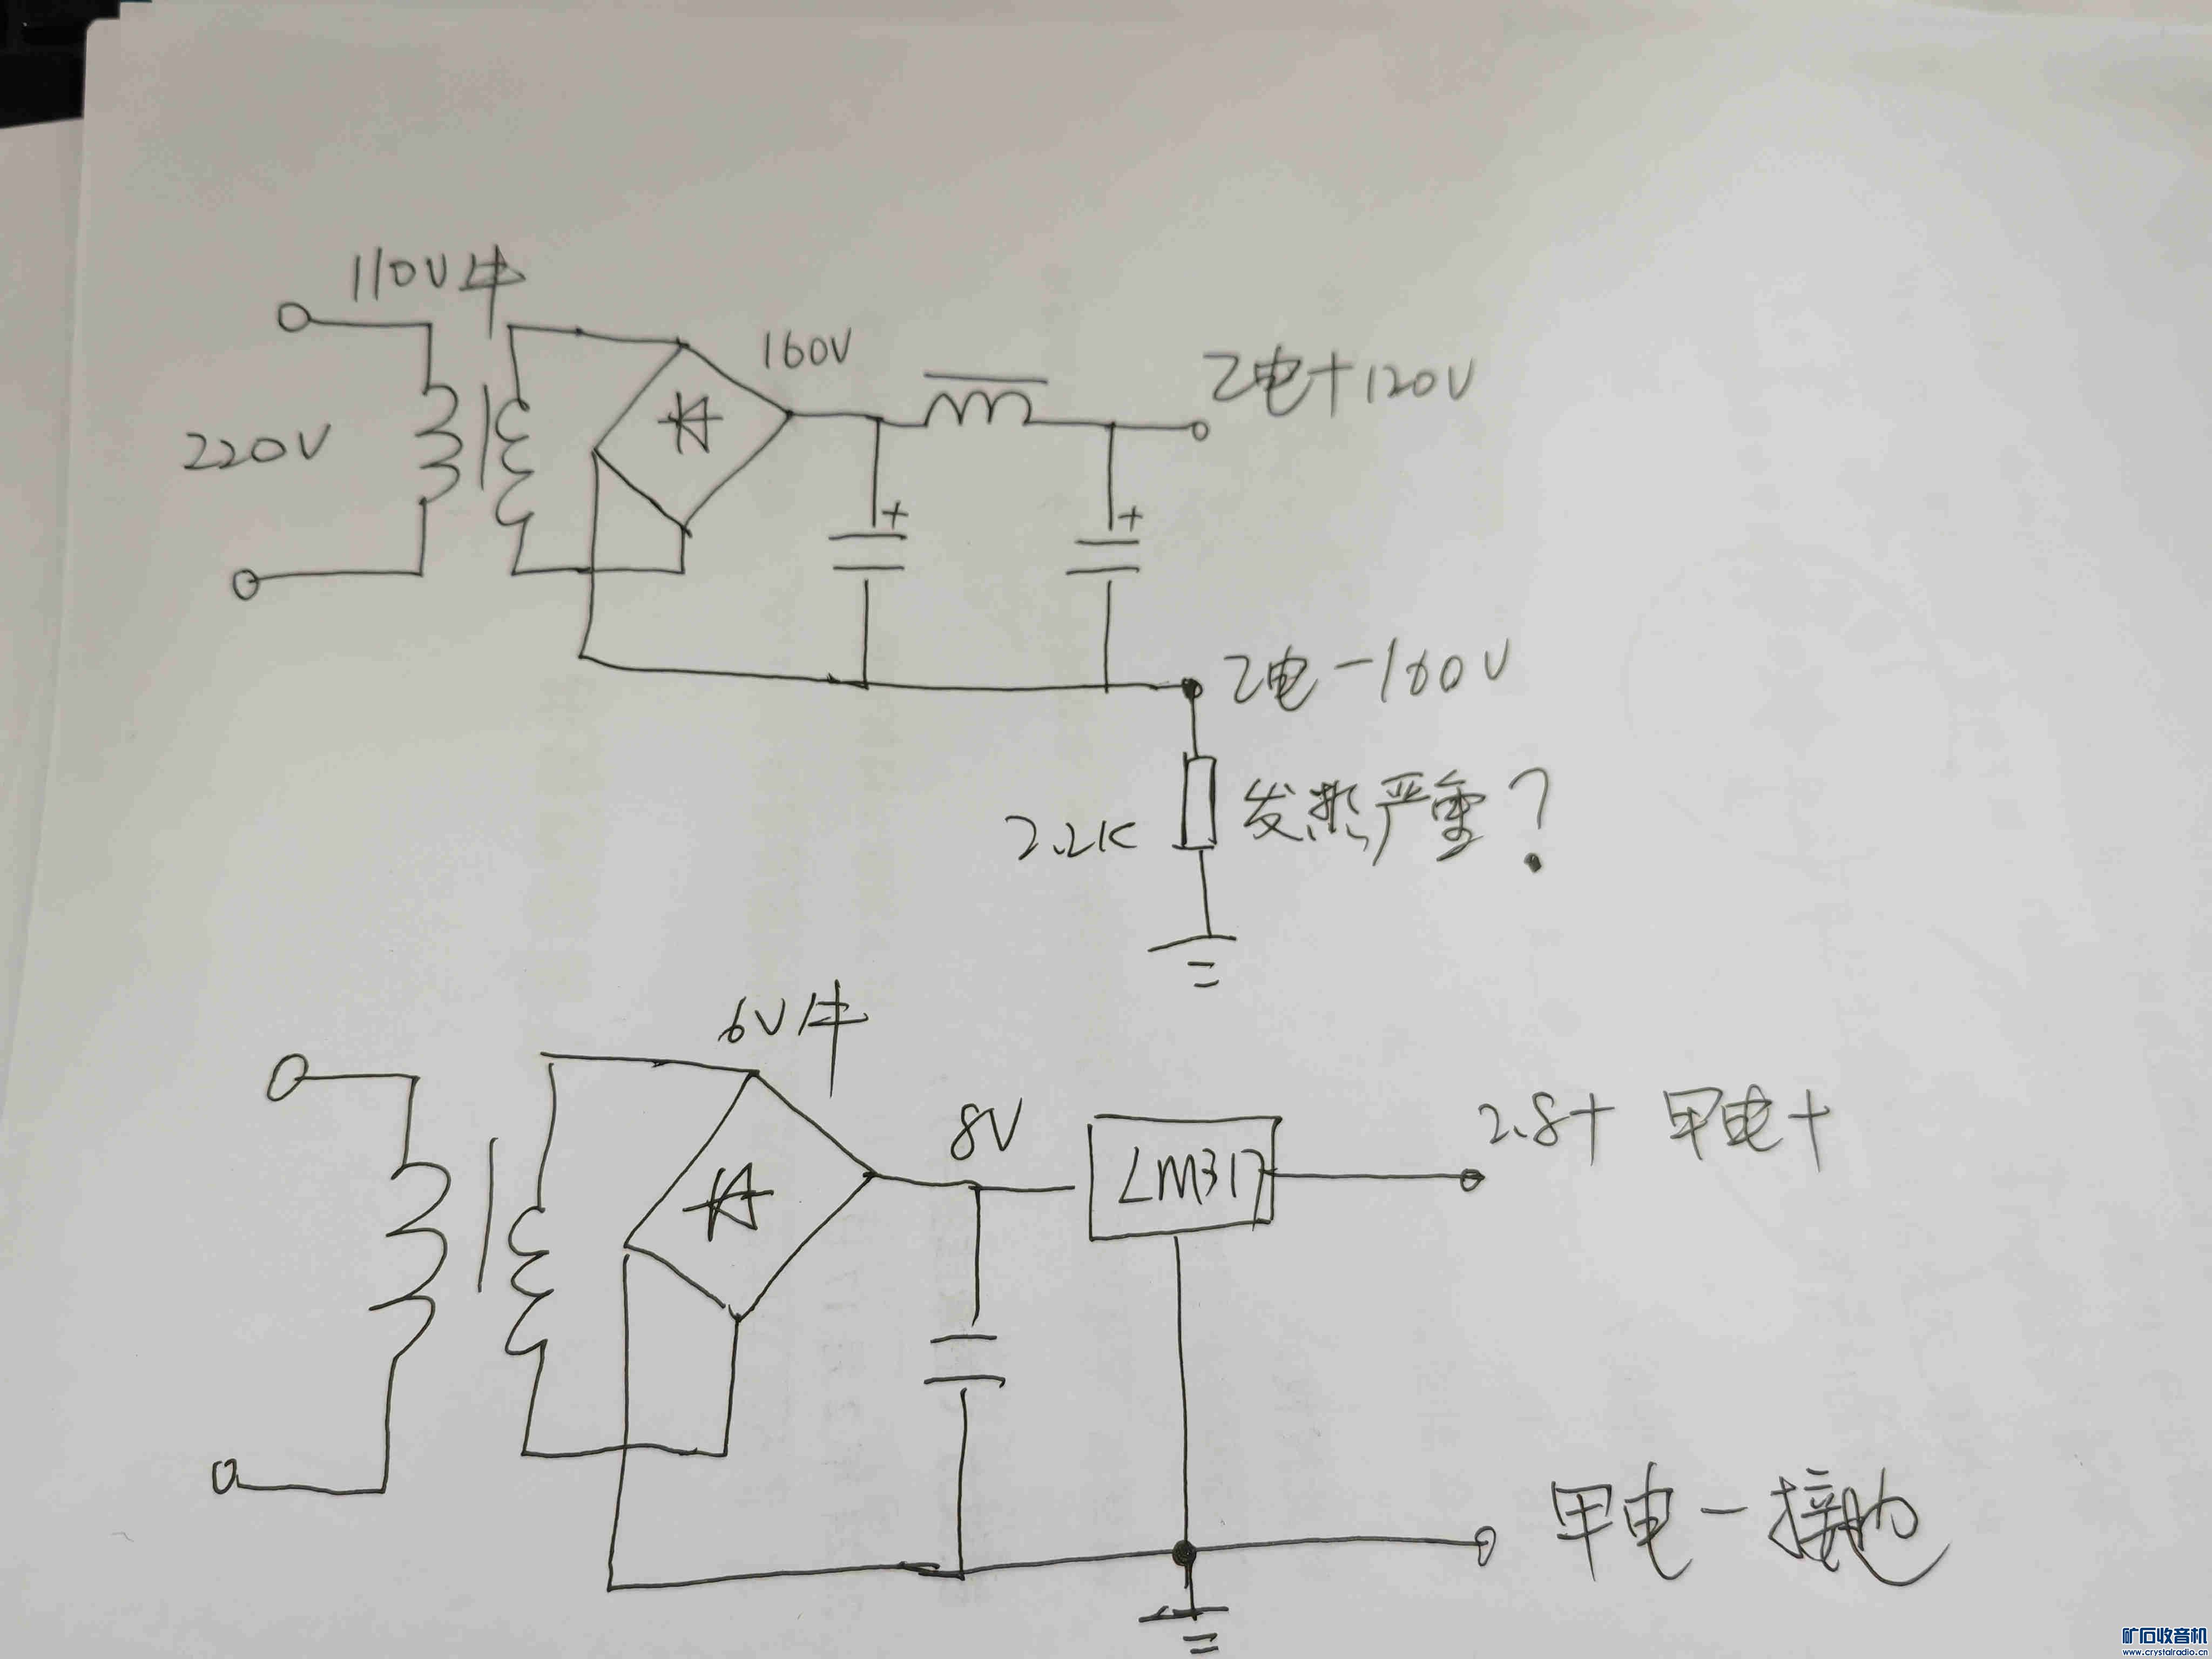 110V牛
220V
160V
乙电+120V
乙电-160V
2.2K
发热严重?
6V牛
8V
LM317
2.8+ 甲电+
甲电-接地
矿石收音机
www.crystalradio.cn